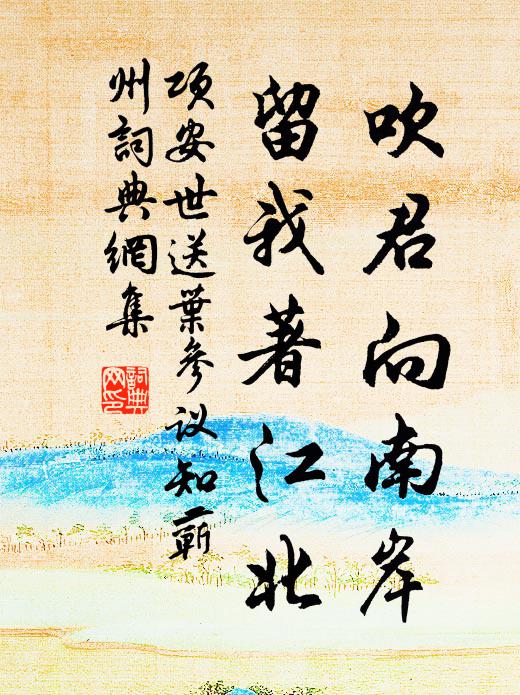 吹君向南岸
留我著江北
项安世送葉參议知蘄
州詞典網集
詞典
网印